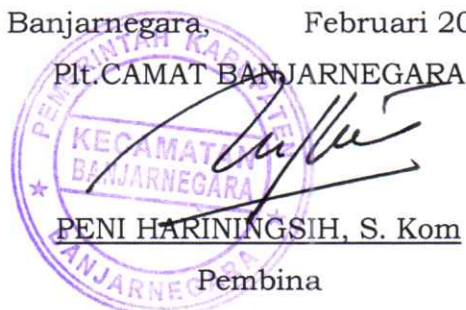 Banjarnegara, Februari 20
Plt.CAMAT BANJARNEGARA
PEMERINTAH KABUPATEN
KECAMATAN
BANJARNEGARA
BANJARNEGARA
PENI HARININGSIH, S. Kom
Pembina